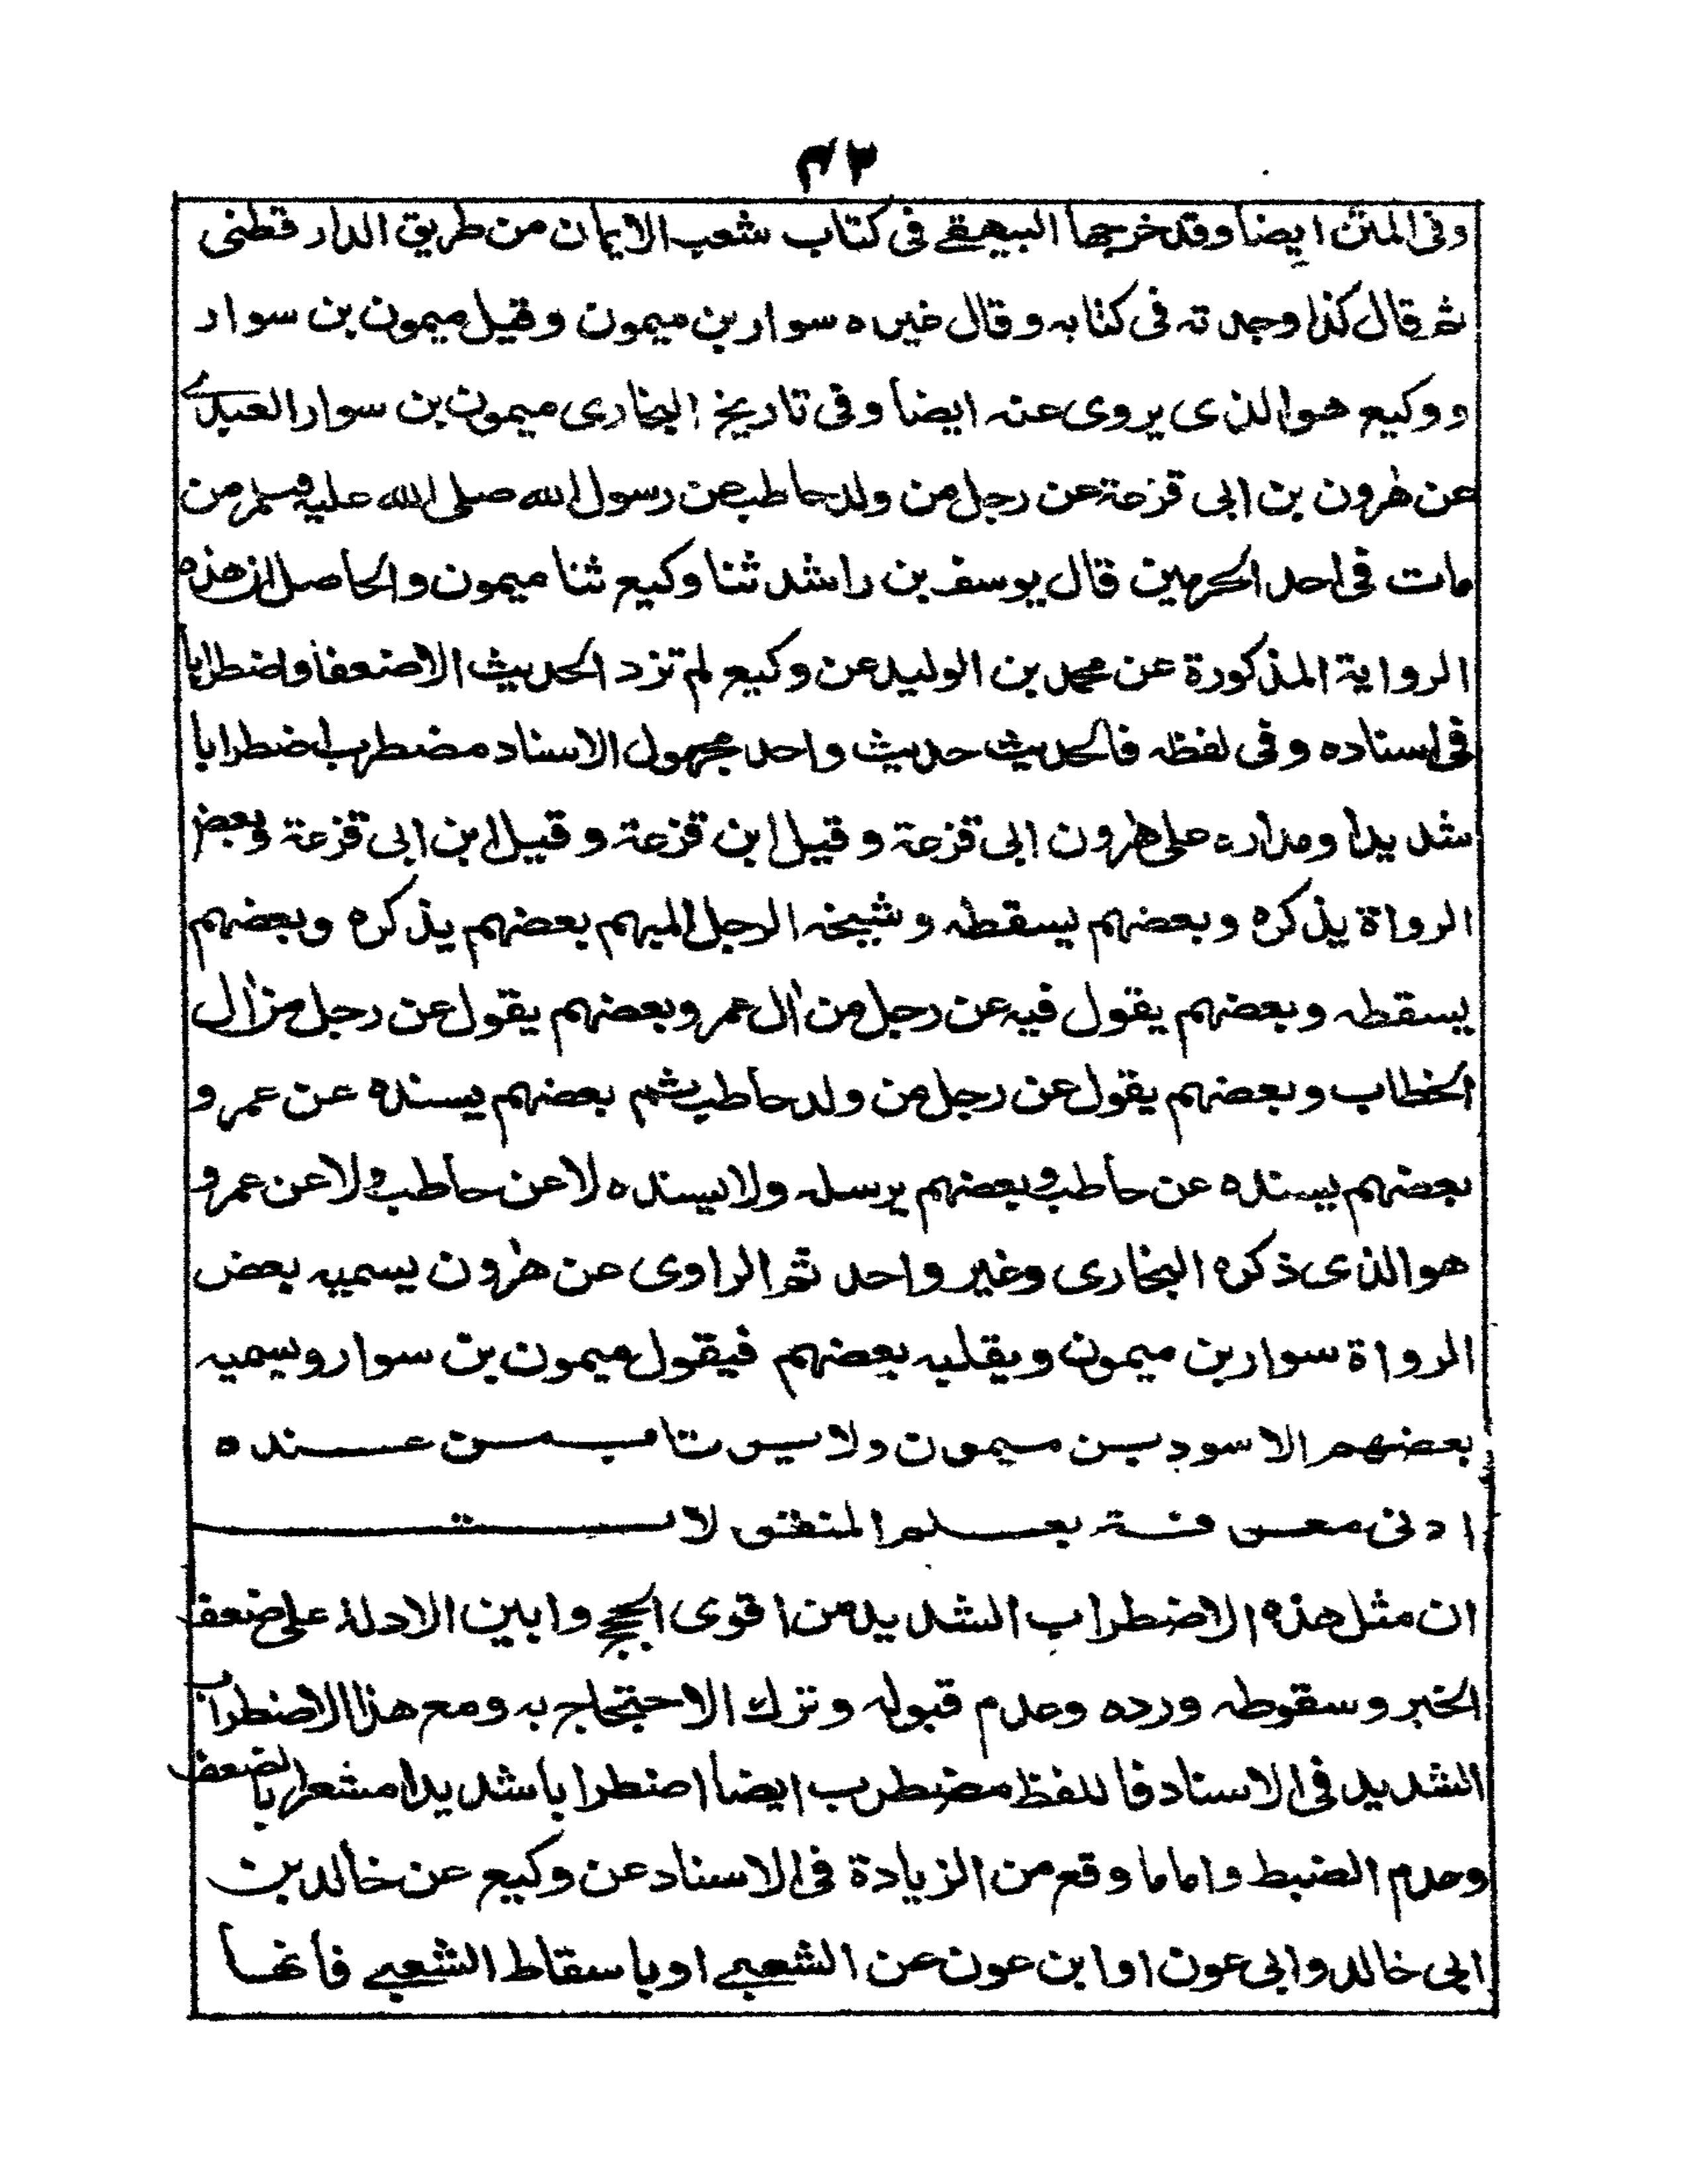 ٤٢
وفى المتن ايضا وقد خرجها البيهقے فى كتاب شعب الايمان من طريق الدار قطنى
ثم قال كذا وجد ته فى كتابه وقال غيره سوار بن ميمون وقيل ميمون بن سوار
ووكيع هو الذى يروى عنه ايضا وفى تاريخ البخارى ميمون بن سوار العبدے
عن هٰرون بن ابى قزعة عن رجل من ولد حاطب عن رسول الله صلى الله عليه وسلم من
مات فى احد الحرمين قال يوسف بن راشد ثنا وكيع ثنا ميمون والحاصل ان هذه
الرواية المذكورة عن محمد بن الوليد عن وكيع لم تزد الحديث الا ضعفا واضطرابا
فى اسناده وفى لفظه فالحديث حديث واحد مجهول الاسناد مضطرب اضطرابا
شديدا ومداره على هٰرون ابى قزعة وقيل ابن قزعة وقيل ابن ابى قزعة وبعض
الرواة يذكره وبعضهم يسقطه وشيخه الرجل المبهم بعضهم يذكره وبعضهم
يسقطه وبعضهم يقول فيه عن رجل من اٰل عمر وبعضهم يقول عن رجل من اٰل
الخطاب وبعضهم يقول عن رجل من ولد حاطب ثم بعضهم يسنده عن عمر و
بعضهم يسنده عن حاطب وبعضهم يرسله ولا يسنده لا عن حاطب ولا عن عمر و
هو الذى ذكره البخارى وغير واحد ثم الراوى عن هٰرون يسميه بعض
الرواة سوار بن ميمون ويقلبه بعضهم فيقول ميمون بن سوار ويسميه
بعضهم الاسود بن ميمون ولا يرتاب من عنده
ادنى معرفة بعلم المنقول
ان مثل هذه الاضطراب الشديد من اقوى الحجج وابين الادلة على ضعف
الخبر وسقوطه ورده وعدم قبوله وترك الاحتجاج به ومع هذا الاضطراب
الشديد فى الاسناد فاللفظ مضطرب ايضا اضطرابا شديدا مشعرا بالضعف
وعدم الضبط واما ما وقع من الزيادة فى الاسناد عن وكيع عن خالد بن
ابى خالد وابى عون او ابن عون عن الشعبے او باسقاط الشعبے فانها